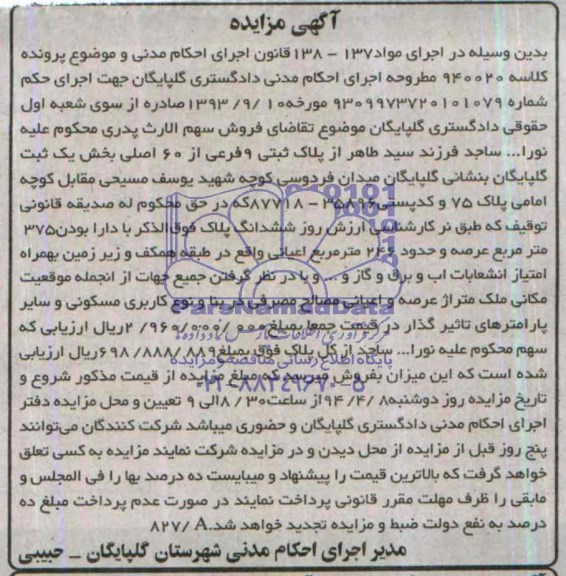 آگهی مزایده
بدین وسیله در اجرای مواد۱۳۷ - ۱۳۸قانون اجرای احکام مدنی و موضوع پرونده
کلاسه ۹۴۰۰۲۰ مطروحه اجرای احکام مدنی دادگستری گلپایگان جهت اجرای حکم
شماره ۹۳۰۹۹۷۳۷۲۰۱۰۱۰۷۹ مورخه۱۰ /۹/ ۱۳۹۳صادره از سوی شعبه اول
حقوقی دادگستری گلپایگان موضوع تقاضای فروش سهم الارث پدری محکوم علیه
نورا... ساجد فرزند سید طاهر از پلاک ثبتی ۹فرعی از ۶۰ اصلی بخش یک ثبت
گلپایگان بنشانی گلپایگان میدان فردوسی کوچه شهید یوسف مسیحی مقابل کوچه
امامی پلاک ۷۵ و کدپستی۳۵۸۹۶ - ۸۷۷۱۸که در حق محکوم له صدیقه قانونی
توقیف که طبق نر کارشناسی ارزش روز ششدانگ پلاک فوق الذکر با دارا بودن۳۷۵
متر مربع عرصه و حدود ۲۴۶ مترمربع اعیانی واقع در طبقه همکف و زیر زمین بهمراه
امتیاز انشعابات اب و برق و گاز و ... و با در نظر گرفتن جمیع جهات از انجمله موقعیت
مکانی ملک متراژ عرصه و اعیانی مصالح مصرفی در بنا و نوع کاربری مسکونی و سایر
پارامترهای تاثیر گذار در قیمت جمعا بمبلغ۰۰۰/ ۰۰۰/ ۹۶۰/ ۲ریال ارزیابی که
سهم محکوم علیه نورا... ساجد از کل پلاک فوق بمبلغ۸۸۹ /۸۸۸/ ۶۹۸ریال ارزیابی
شده است که این میزان بفروش میرسد که مبلغ مزایده از قیمت مذکور شروع و
تاریخ مزایده روز دوشنبه۸ /۴/ ۹۴از ساعت۳۰ /۸الی ۹ تعیین و محل مزایده دفتر
اجرای احکام مدنی دادگستری گلپایگان و حضوری میباشد شرکت کنندگان می‌توانند
پنج روز قبل از مزایده از محل دیدن و در مزایده شرکت نمایند مزایده به کسی تعلق
خواهد گرفت که بالاترین قیمت را پیشنهاد و میبایست ده درصد بها را فی المجلس و
مابقی را ظرف مهلت مقرر قانونی پرداخت نمایند در صورت عدم پرداخت مبلغ ده
درصد به نفع دولت ضبط و مزایده تجدید خواهد شد.A /۸۲۷
مدیر اجرای احکام مدنی شهرستان گلپایگان - حبیبی
ParsNamadData
پایگاه اطلاع رسانی مناقصه و مزایده
۰۲۱-۸۸۳۴۹۶۷۰-۵